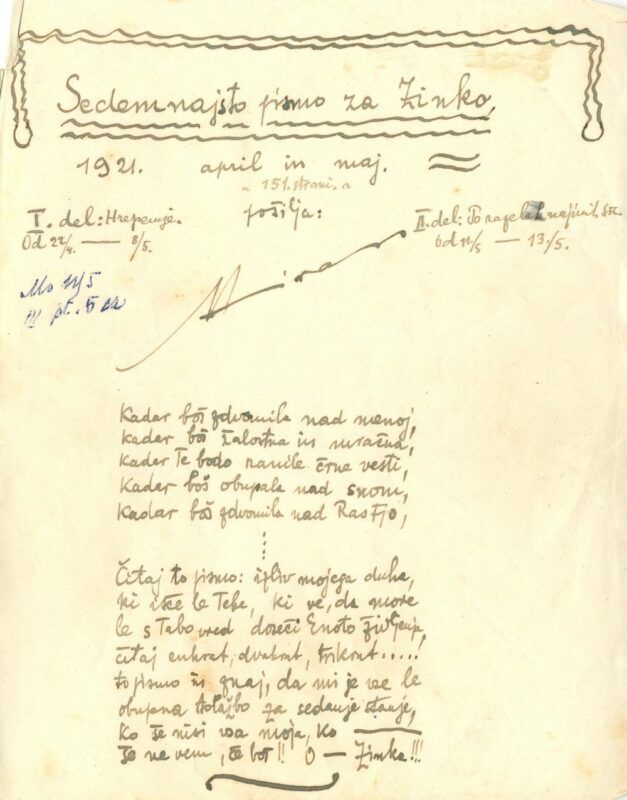 Sedemnajsto pismo za Zinko,
1921. april in maj.
„ 151. strani. "
I. del: Hrepenenje.
Od 22/4. — 8/5.
pošilja:
II. del: Po
Od 11/5 — 13./5.
11/5
Kadar boš zdvomila nad menoj,
kadar boš žalostna in mračna,
kadar Te bodo ranile črne vesti,
kadar boš obupala nad snom,
kadar boš zdvomila nad Rastjo,
Čitaj to pismo: izliv mojega duha,
ki išče le Tebe, ki ve, da more
le s Tabo vred doseči Enoto življenja,
čitaj enkrat, dvakrat, trikrat.....!
to pismo in znaj, da mi je vse le
obupna tolažba za sedanje stanje,
ko še nisi vsa moja, ko —
še ne vem, če boš!! O — Zinka!!!